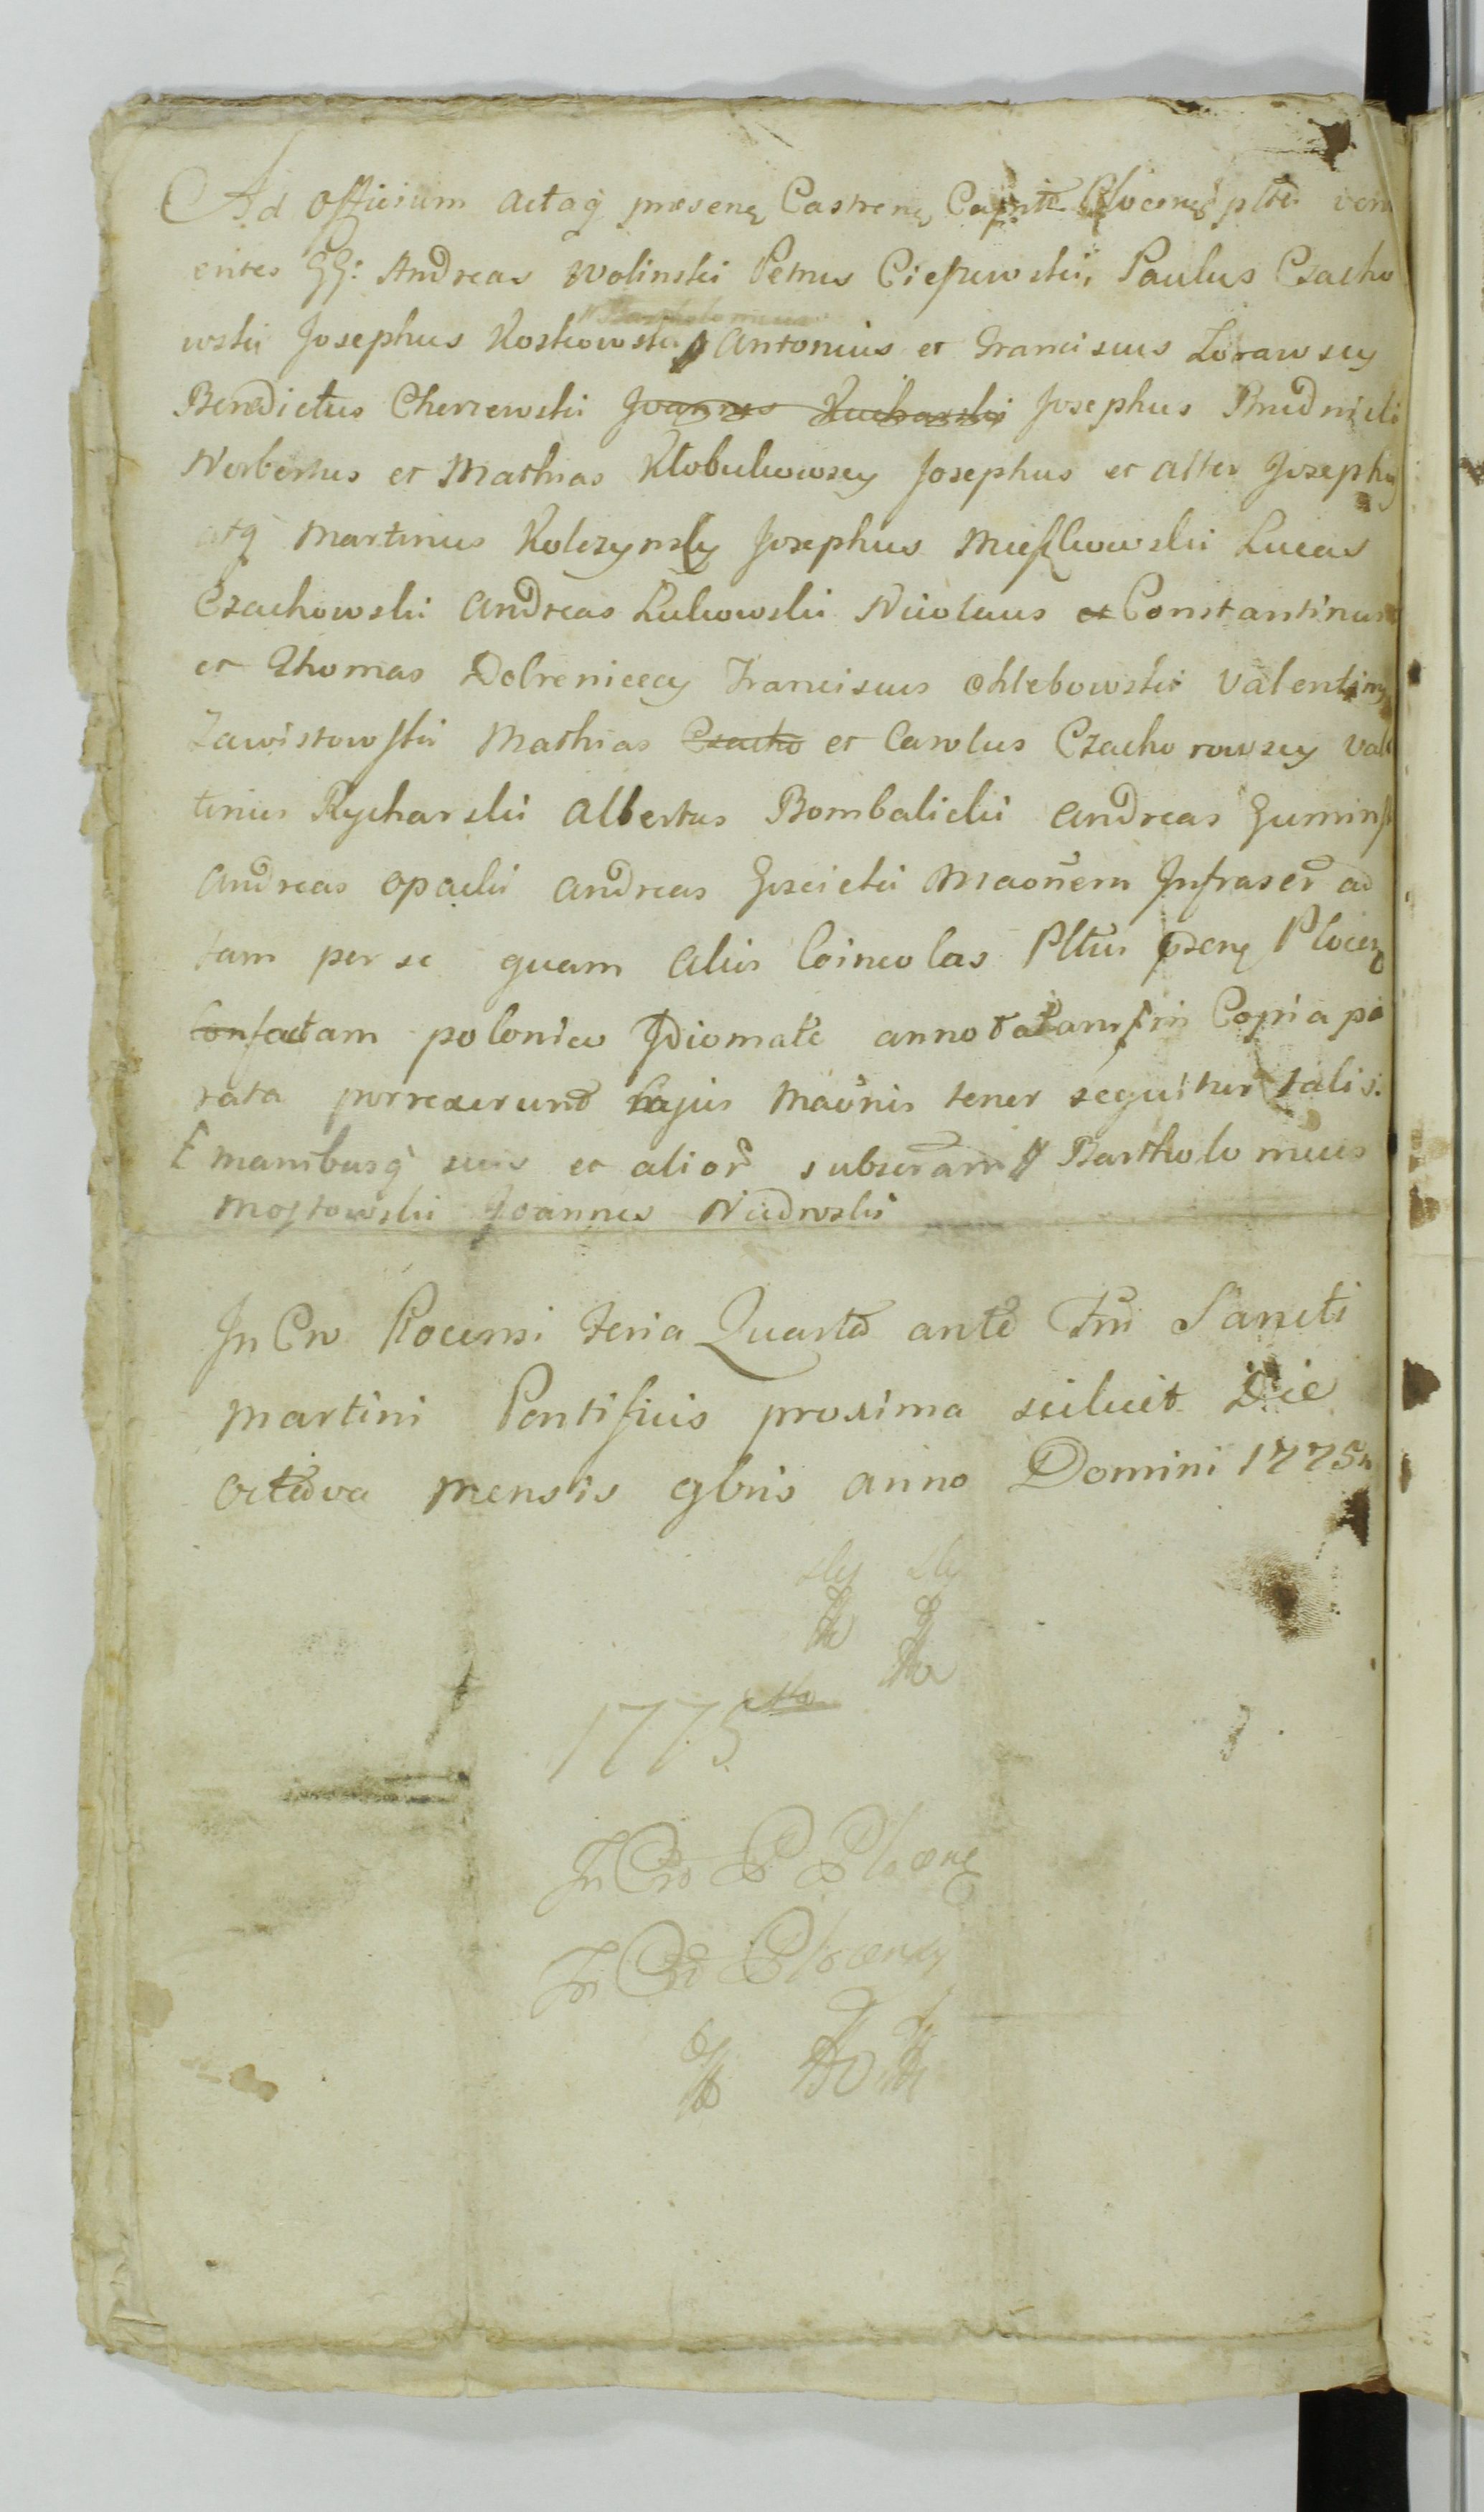 Ad Officium Actaq̨ præsenę Castrenę Capitle Plocenę plr̄ veni
entes GG: Andreas Wolinski Petrus Ciepuwski, Paulus Czacho
wski Josephus Koskowski ∦ Antonius et Franciscus Zorawscy
∦ Bartholomeus
Benedictus Cherzewski Joannes Kucharski Josephus Brudnicki
Norbertus et Mathias Kłobukowscy Josephus et alter Josephus
atq̨ Martinus Kolczynscy Josephus Mieszkowski Lucas
Czachowski Andreas Lukowski Nicolaus et Constantinus
et Thomas Dobrenieccy Franciscus Chlebowski Valentinus
Zawistowski Mathias Czacho et Carolus Czachorowscy Vale
tinus Rycharski Albertus Bombalicki Andreas Gumins
Andreas Opacki Andreas Goscicki Maōnem Infrascr̄ ad
tam per se quam alios Coincolas Pltūs p̄senę Plocenę
Confactam polonico Idiomate annotatam ⁅ in Copia pa
rata porrexerunt Cujus Maōnis tenor sequitur talis.
⁅ manibusq̨ suis et alior̄ subscr̄am ∦ Bartholomeus
Mostowski Joannes Niedrwski
In Cro Plocensi Feria Quarta ante Fm̄ Sancti
Martini Pontificis proxima scilicet Die
octava Mensis 9bris anno Domini 1775
1775
In Cro P Plocenę
In Cro Plocensy